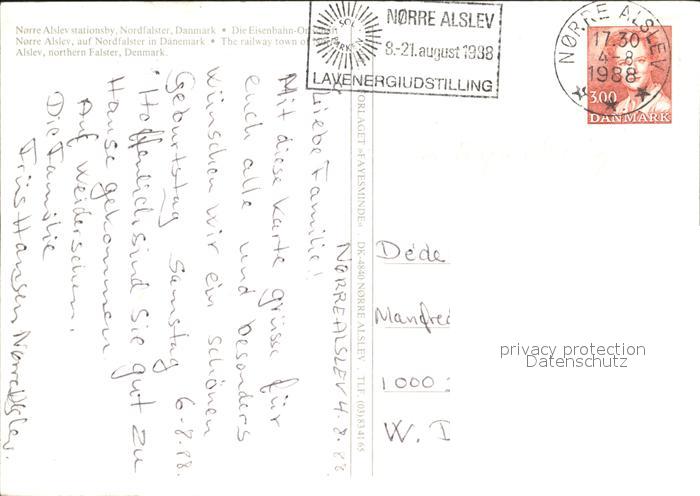 Nørre Alslev stationsby, Nordfalster, Danmark • Die Eisenbahn-
Nørre Alslev, auf Nordfalster in Dänemark • The railway town of
Alslev, northern Falster, Denmark.
SOL
MARKED
NØRRE ALSLEV
8.-21. august 1988
LAVENERGIUDSTILLING
NØRRE ALSLEV
17.30
4-8
1988
3.00
DANMARK
FORLAGET »FAYESMINDE« · DK-4840 NØRRE ALSLEV · TLF. (03) 83 41 65
NØRRE ALSLEV 4.8.88
Liebe Familie!
Mit diese Karte grüsse für
euch alle und besonders
wünschen wir ein schönen
Geburtstag Samstag 6-8.88.
Hoffentlich sind Sie gut zu
Hause gekommen.
Auf Weidersehen.
Die Familie
Friis Hansen Nørre Alslev.
Dede
Manfred
1000
W. D
privacy protection
Datenschutz